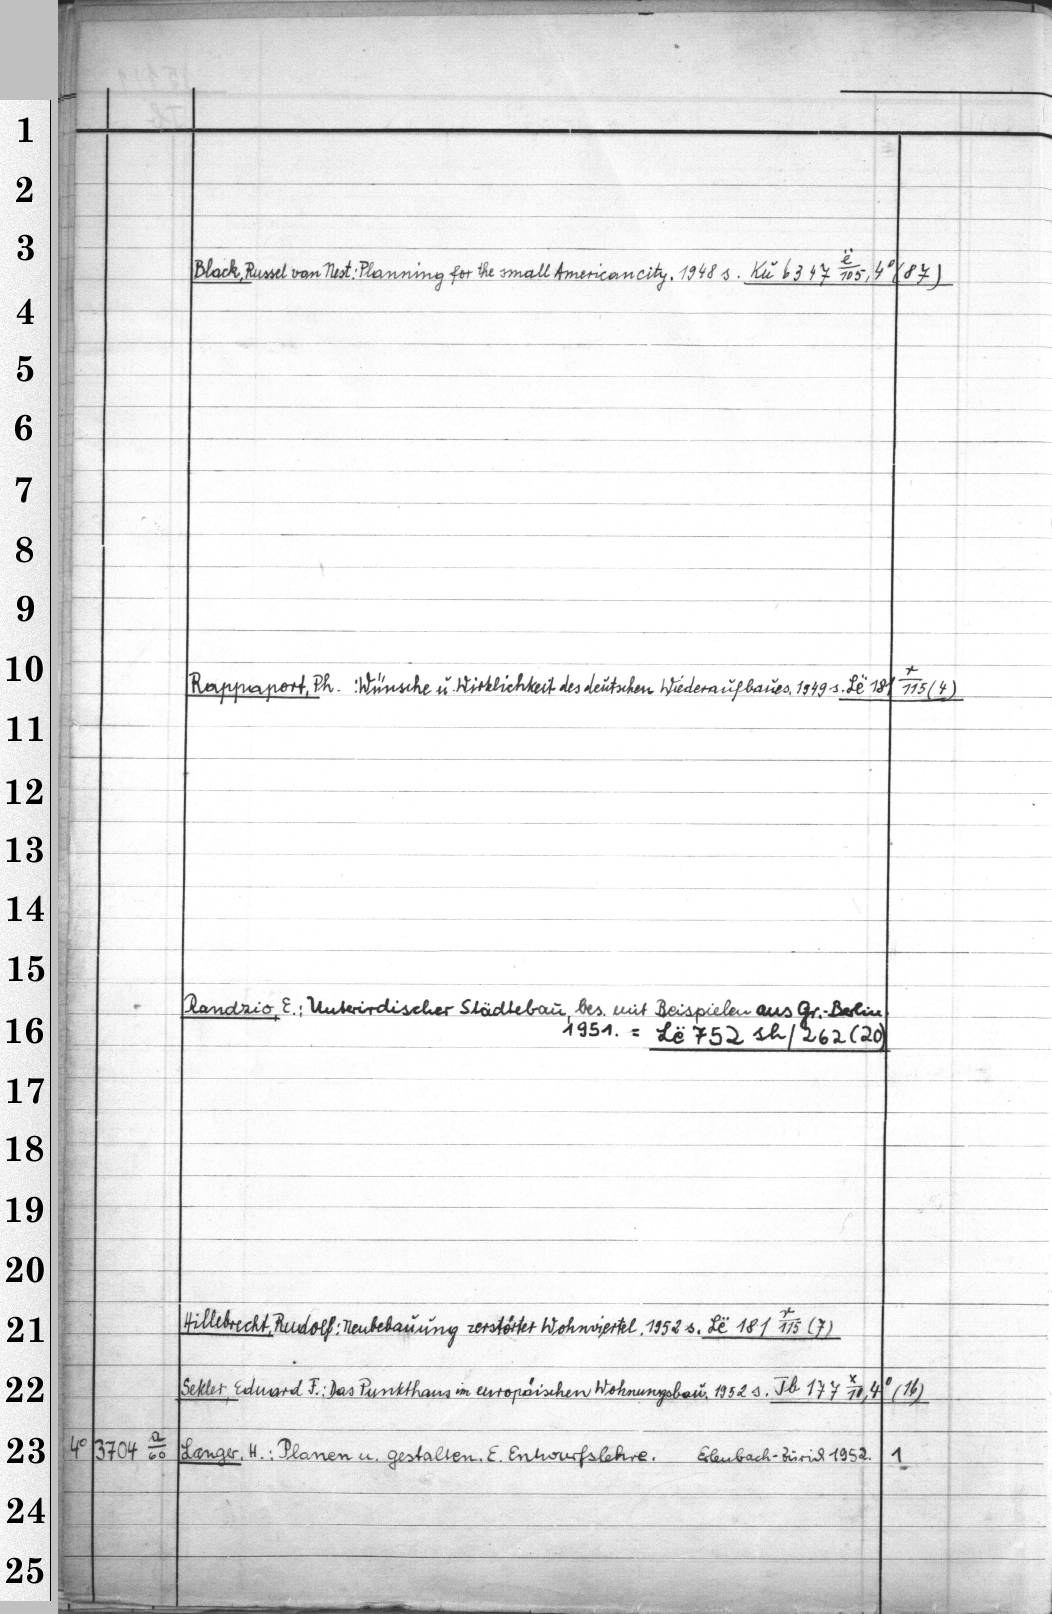 1
2
3
Black, Russel van Nest: Planning for the small American city. 1948 s. Kü 6347 ë/105, 4° (87)
4
5
6
7
8
9
10
Rappaport, Ph. : Wünsche u. Wirklichkeit des deutschen Wiederaufbaues. 1949 s. Lë 181 x/115 (4)
11
12
13
14
15
Randzio, E.: Unterirdischer Städtebau, bes. mit Beispielen aus Gr.-Berlin
16
1951. = Lë 752 sh/262 (20)
17
18
19
20
21 Hillebrecht, Rudolf: Neubebauung zerstörter Wohnviertel. 1952 s. Lë 181 x/115 (7)
22 Sekler, Eduard F.: Das Punkthaus im europäischen Wohnungsbau. 1952 s. Tb 177 x/10, 4° (16)
23 4° 3704 a/60 Langer, H.: Planen u. gestalten. E. Entwurfslehre. Erlenbach-Zürich 1952. 1
24
25